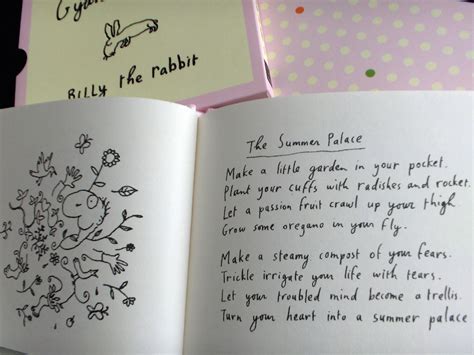 Billy the rabbit
The Summer Palace
Make a little garden in your pocket.
Plant your cuffs with radishes and rocket.
Let a passion fruit crawl up your thigh
Grow some oregano in your fly.
Make a steamy compost of your fears.
Trickle irrigate your life with tears.
Let your troubled mind become a trellis.
Turn your heart into a summer palace